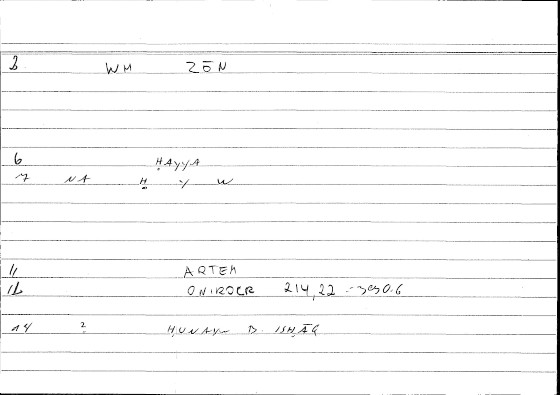 3 WM ZŌN
6 ḤAYYA
7 NA Ḥ Y W
11 ARTEM
12 ONIROCR 214,22 - 390.6
14 ? ḤUNAYN B. ISḤĀQ